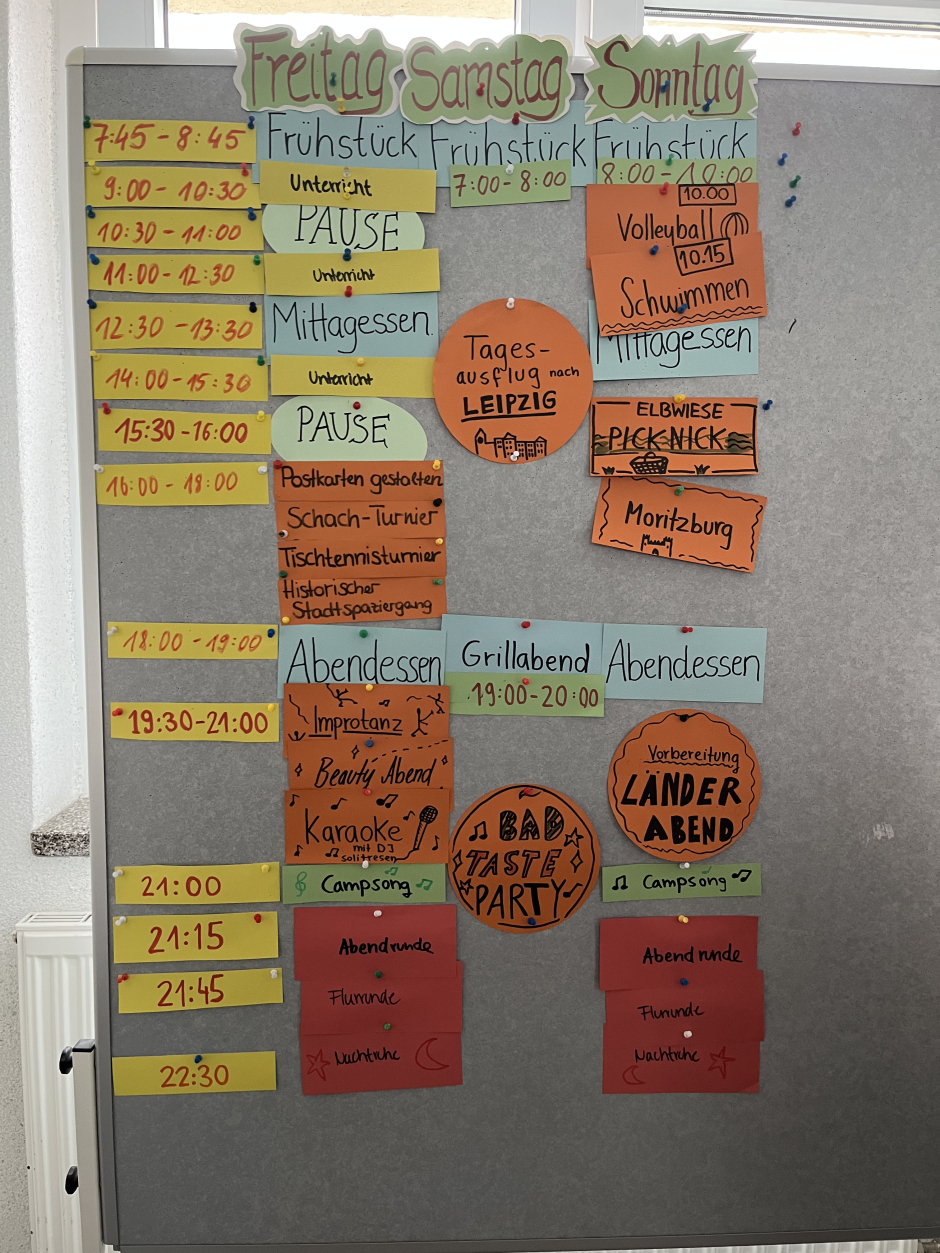 Freitag Samstag Sonntag
7:45 - 8:45 Frühstück Frühstück Frühstück
7:00 - 8:00 8:00 - 10:00
9:00 - 10:30 Unterricht
10.00
Volleyball
10:30 - 11:00 PAUSE
10.15
Schwimmen
11:00 - 12:30 Unterricht
12:30 - 13:30 Mittagessen Mittagessen
Tages-
ausflug nach
LEIPZIG
14:00 - 15:30 Unterricht
15:30 - 16:00 PAUSE
ELBWIESE
PICKNICK
16:00 - 18:00 Postkarten gestalten
Schach-Turnier
Tischtennisturnier
Historischer
Stadtspaziergang
Moritzburg
18:00 - 19:00 Abendessen Grillabend Abendessen
19:00 - 20:00
19:30 - 21:00 Improtanz
Beauty Abend
Karaoke
mit DJ
solitresen
BAD
TASTE
PARTY
Vorbereitung
LÄNDER
ABEND
21:00 Campsong Campsong
21:15 Abendrunde Abendrunde
21:45 Flurrunde Flurrunde
22:30 Nachtruhe Nachtruhe